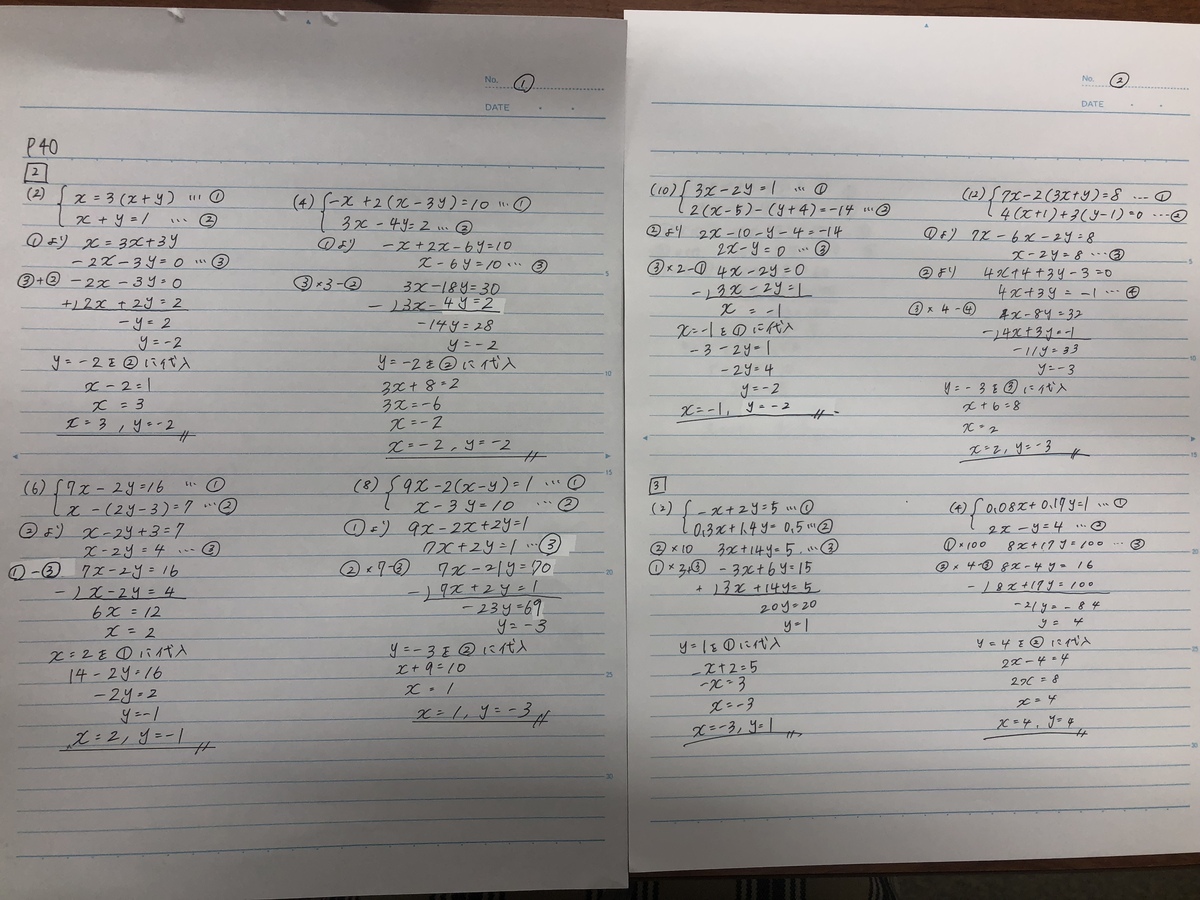 No. ①
DATE
P40
2
(2) { x=3(x+y) … ①
x+y=1 … ②
①より x=3x+3y
-2x-3y=0 … ③
③+② -2x-3y=0
+) 2x+2y=2
-y=2
y=-2
y=-2を②に代入
x-2=1
x=3
x=3, y=-2
(4) { -x+2(x-3y)=10 … ①
3x-4y=2 … ②
①より -x+2x-6y=10
x-6y=10 … ③
③×3-② 3x-18y=30
-) 3x-4y=2
-14y=28
y=-2
y=-2を②に代入
3x+8=2
3x=-6
x=-2
x=-2, y=-2
(6) { 7x-2y=16 … ①
x-(2y-3)=7 … ②
②より x-2y+3=7
x-2y=4 … ③
①-③ 7x-2y=16
-) x-2y=4
6x=12
x=2
x=2を①に代入
14-2y=16
-2y=2
y=-1
x=2, y=-1
(8) { 9x-2(x-y)=1 … ①
x-3y=10 … ②
①より 9x-2x+2y=1
7x+2y=1 … ③
②×7-③ 7x-21y=70
-) 7x+2y=1
-23y=69
y=-3
y=-3を②に代入
x+9=10
x=1
x=1, y=-3
No. ②
DATE
(10) { 3x-2y=1 … ①
2(x-5)-(y+4)=-14 … ②
②より 2x-10-y-4=-14
2x-y=0 … ③
③×2-① 4x-2y=0
-) 3x-2y=1
x=-1
x=-1を①に代入
-3-2y=1
-2y=4
y=-2
x=-1, y=-2
(12) { 7x-2(3x+y)=8 … ①
4(x+1)+3(y-1)=0 … ②
①より 7x-6x-2y=8
x-2y=8 … ③
②より 4x+4+3y-3=0
4x+3y=-1 … ④
③×4-④ 4x-8y=32
-) 4x+3y=-1
-11y=33
y=-3
y=-3を③に代入
x+6=8
x=2
x=2, y=-3
3
(2) { -x+2y=5 … ①
0.3x+1.4y=0.5 … ②
②×10 3x+14y=5 … ③
①×3+③ -3x+6y=15
+) 3x+14y=5
20y=20
y=1
y=1を①に代入
-x+2=5
-x=3
x=-3
x=-3, y=1
(4) { 0.08x+0.17y=1 … ①
2x-y=4 … ②
①×100 8x+17y=100 … ③
②×4-③ 8x-4y=16
-) 8x+17y=100
-21y=-84
y=4
y=4を②に代入
2x-4=4
2x=8
x=4
x=4, y=4